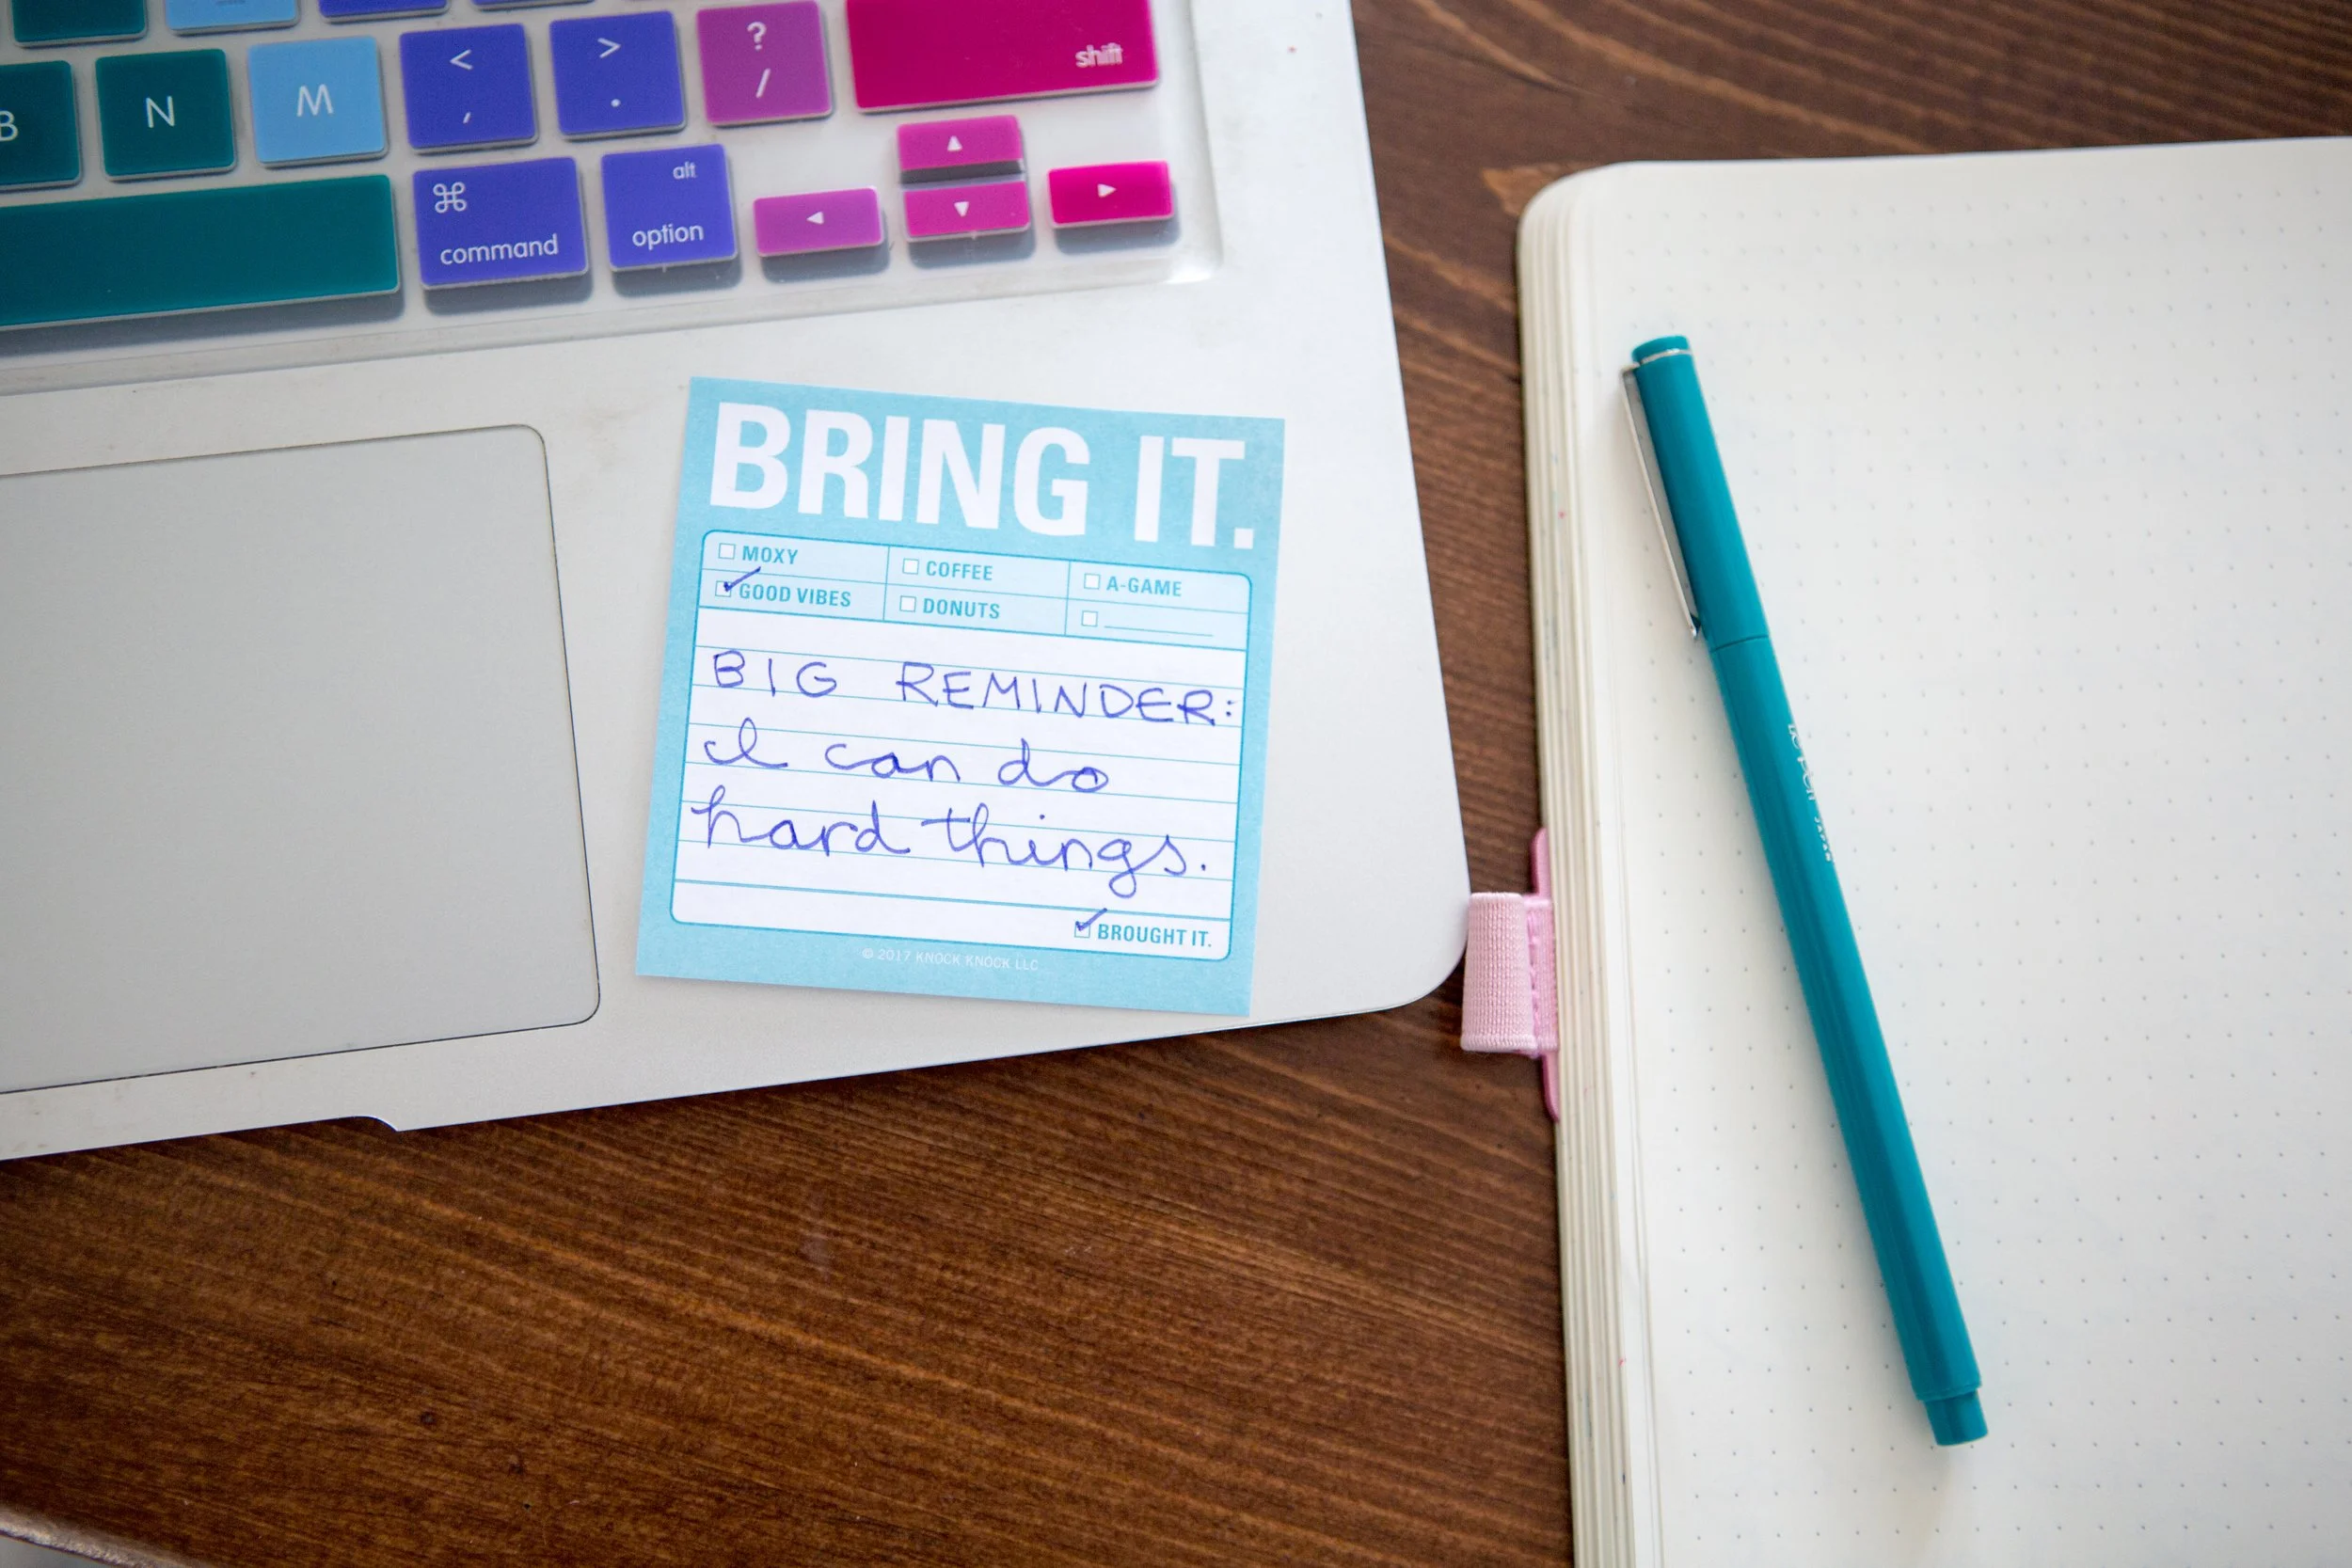 B
N
M
<
,
>
.
?
/
shift
⌘
command
alt
option
▲
◀
▼
▶
BRING IT.
MOXY
COFFEE
A-GAME
GOOD VIBES
DONUTS
BIG REMINDER:
I can do
hard things.
BROUGHT IT.
© 2017 KNOCK KNOCK LLC
Le Pen JAPAN